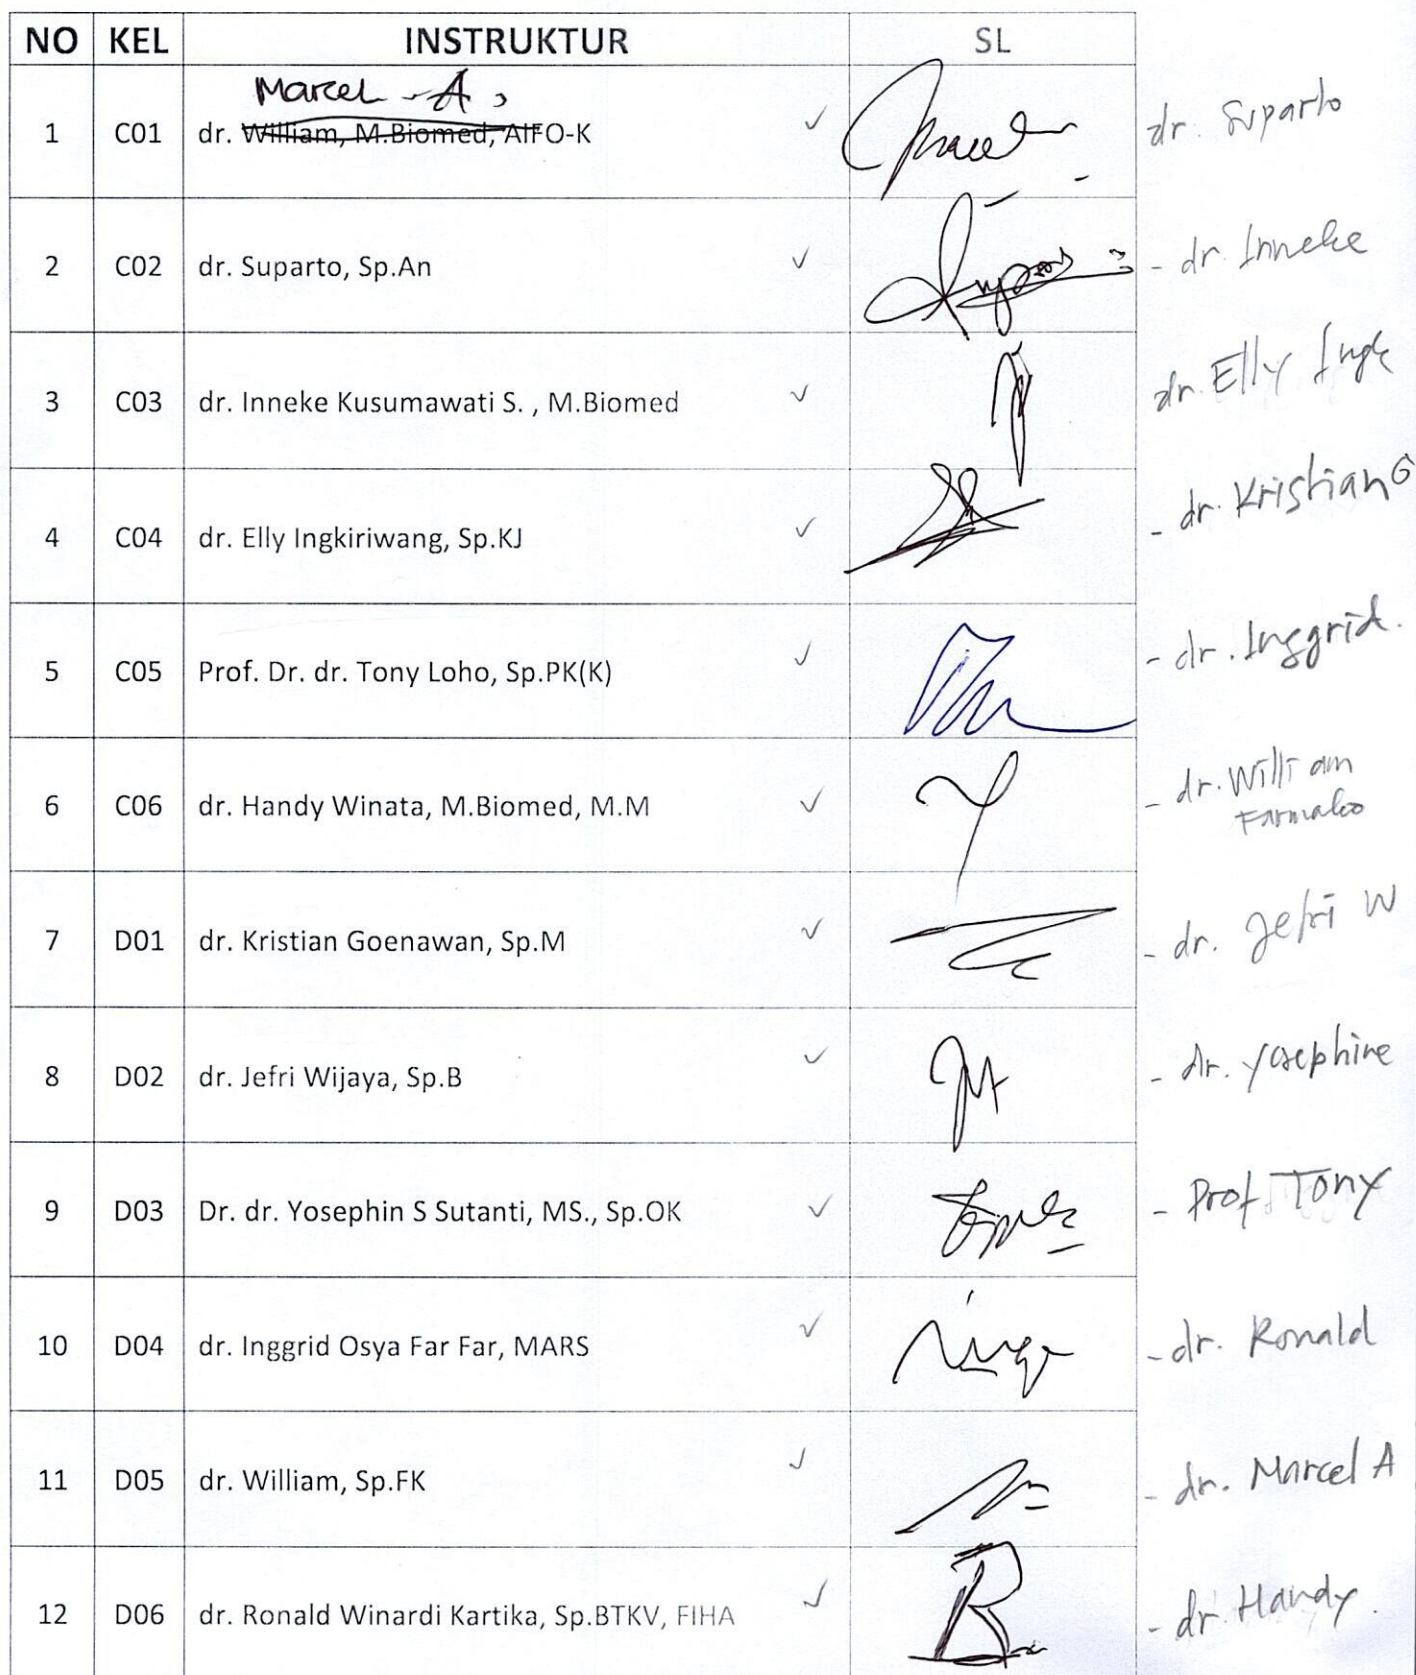 NO KEL INSTRUKTUR SL
Marcel A
1 C01 dr. William, M.Biomed, AIFO-K ✓ dr. Suparto
2 C02 dr. Suparto, Sp.An ✓ - dr. Inneke
3 C03 dr. Inneke Kusumawati S. , M.Biomed ✓ dr. Elly Ingk
4 C04 dr. Elly Ingkiriwang, Sp.KJ ✓ - dr. Kristian G
5 C05 Prof. Dr. dr. Tony Loho, Sp.PK(K) ✓ - dr. Inggrid.
6 C06 dr. Handy Winata, M.Biomed, M.M ✓ - dr. William
Farmako
7 D01 dr. Kristian Goenawan, Sp.M ✓ - dr. Jefri W
8 D02 dr. Jefri Wijaya, Sp.B ✓ - dr. Yosephine
9 D03 Dr. dr. Yosephin S Sutanti, MS., Sp.OK ✓ - Prof. Tony
10 D04 dr. Inggrid Osya Far Far, MARS ✓ - dr. Ronald
11 D05 dr. William, Sp.FK ✓ - dr. Marcel A
12 D06 dr. Ronald Winardi Kartika, Sp.BTKV, FIHA ✓ - dr. Handy.